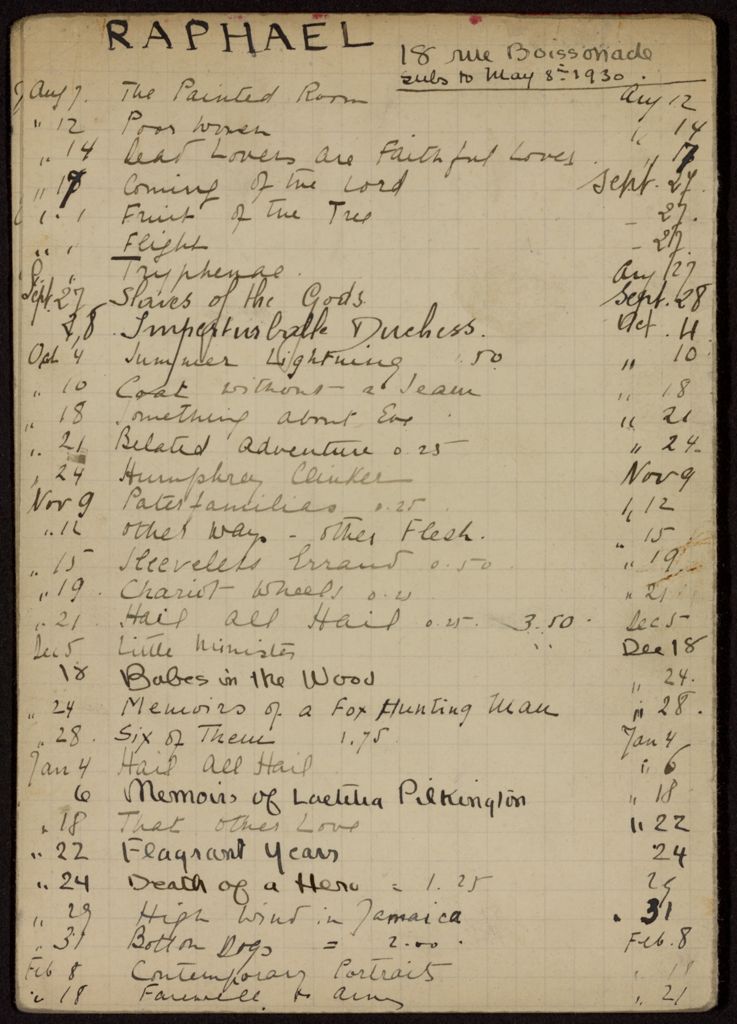 RAPHAEL
18 rue Boissonade
subs to May 8th 1930.
Aug 7. The Painted Room Aug 12
" 12 Poor Women " 14
" 14 Dead Lovers are Faithful Lovers " 17
" 17 Coming of the Lord Sept. 27.
" " Fruit of the Tree - 27.
" " Flight - 27.
" " Tryphenae. Aug 27
Sept. 27 Slaves of the Gods Sept. 28
28. Imperturbable Duchess. Oct. 4
Oct 4 Summer Lightning .50 " 10
" 10 Coat without a Seam " 18
" 18 Something about Eve " 21
" 21 Belated Adventure 0.25 " 24.
" 24 Humphrey Clinker Nov 9
Nov 9 Paterfamilias 0.25 " 12
" 12 other ways - other Flesh. " 15
" 15 Sleeveless Errand 0.50 " 19
" 19. Chariot Wheels 0.25 " 21
" 21 Hail All Hail 0.25. 3.50. Dec 5
Dec 5 Little Minister Dec 18
18 Babes in the Wood " 24.
" 24 Memoirs of a Fox Hunting Man " 28.
" 28. Six of Them 1.75. Jan 4
Jan 4 Hail All Hail " 6
6 Memoirs of Laetitia Pilkington " 18
" 18 That other Love " 22
" 22 Flagrant Years 24
" 24 Death of a Hero = 1.25 29
" 29 High Wind in Jamaica " 31
" 31 Bottom Dogs = 2.00. Feb. 8
Feb 8 Contemporary Portraits " 18
" 18 Farewell to Arms " 21